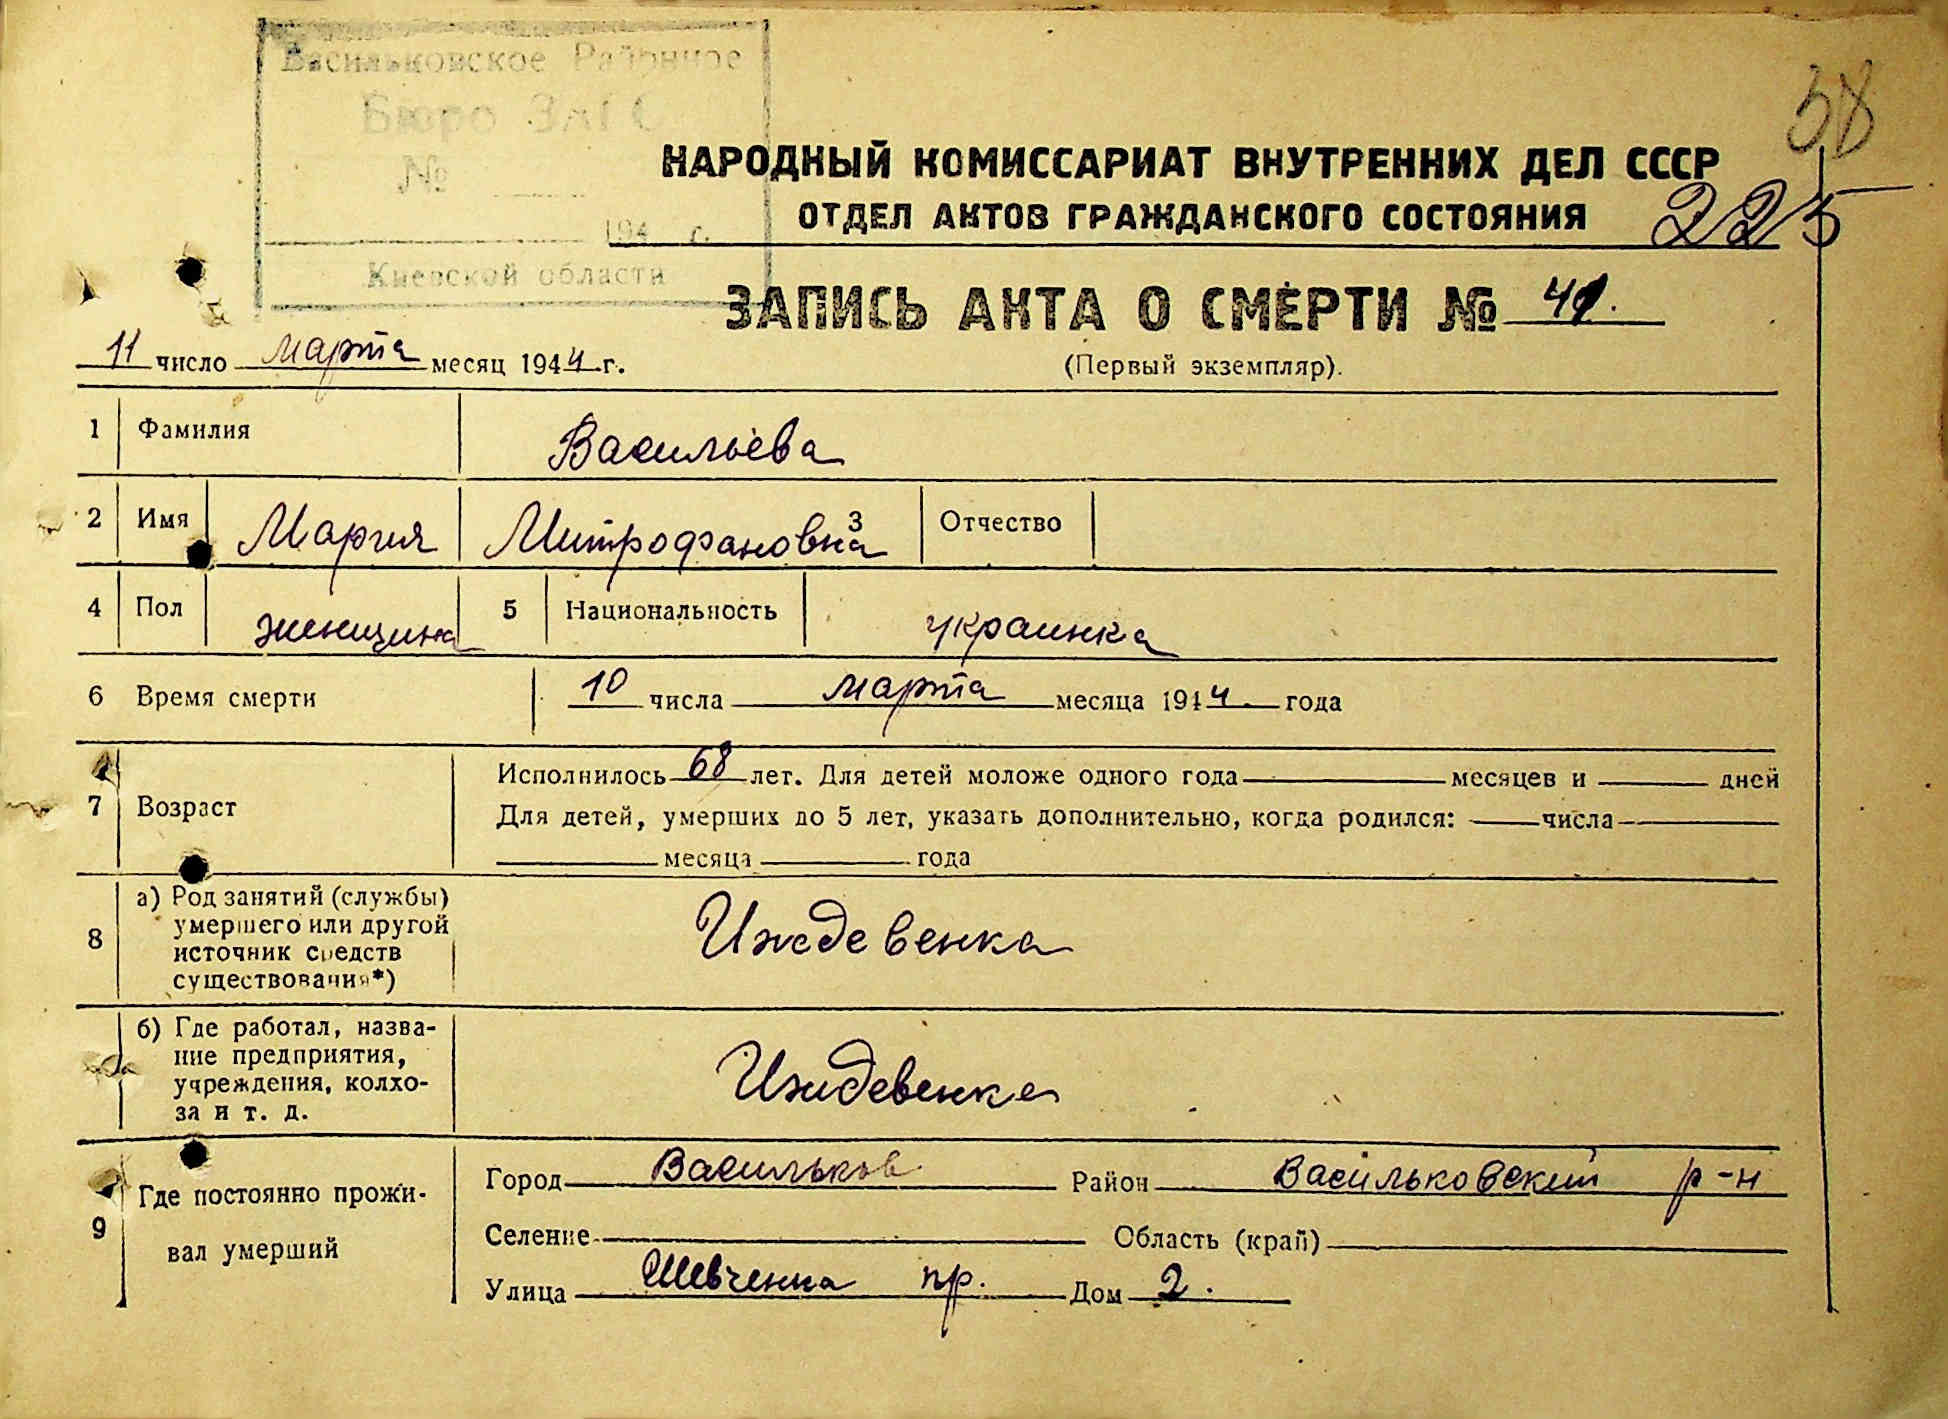 Васильковское Районное
Бюро ЗАГС
№
194 г.
Киевской области
58
НАРОДНЫЙ КОМИССАРИАТ ВНУТРЕННИХ ДЕЛ СССР
ОТДЕЛ АКТОВ ГРАЖДАНСКОГО СОСТОЯНИЯ 225
ЗАПИСЬ АКТА О СМЕРТИ №
11 число марта месяц 1944 г. (Первый экземпляр).
1 Фамилия Васильева
2 Имя Мария Митрофановна 3 Отчество
4 Пол женщина 5 Национальность украинка
6 Время смерти 10 числа марта месяца 1944 года
7 Возраст
Исполнилось 68 лет. Для детей моложе одного года месяцев и дней
Для детей, умерших до 5 лет, указать дополнительно, когда родился: числа
месяца года
8 а) Род занятий (службы)
умершего или другой
источник средств
существования*)
Иждевенка
б) Где работал, назва-
ние предприятия,
учреждения, колхо-
за и т. д.
Иждевенка
9 Где постоянно прожи-
вал умерший
Город Васильков Район Васильковский р-н
Селение Область (край)
Улица Шевченка пр. Дом 2.